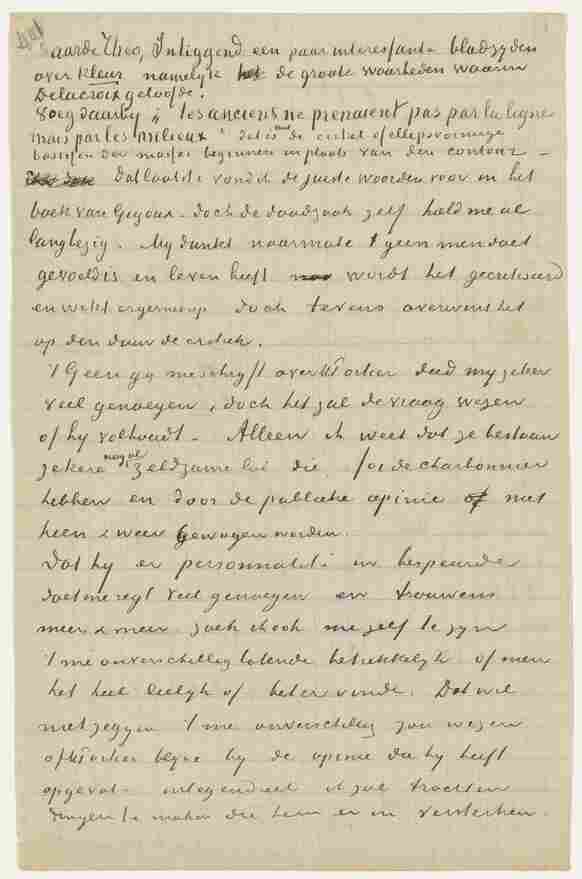 Waarde Theo, Inliggend een paar interessante bladzyden
over kleur namelyk de groote waarheden waarin
Delacroix geloofde.
Voeg daarby „les anciens ne prenaient pas par la ligne
mais par les milieux” dat is met de cirkel of ellipsvormige
bases van de massas beginnen in plaats van den contour –
Dat laatste vond ik de juiste woorden voor in het
boek van Gigoux – doch de daadzaak zelf hield me al
lang bezig. My dunkt naarmate 't geen men doet
gevoeld is en leven heeft wordt het gecritiseerd
en wekt ergernis op doch tevens overwint het
op den duur de critiek.
't Geen gy me schryft over Portier deed my zeker
veel genoegen, doch het zal de vraag wezen
of hy volhoudt – Alleen ik weet dat ze bestaan
zekere nog al zeldzame lui die foi de charbonnier
hebben en door de publieke opinie niet
heen & weer gewogen worden.
Dat hy er personnalité in bespeurde
doet me regt veel genoegen en trouwens
meer & meer zoek ik ook me zelf te zyn
't me onverschillig latende betrekkelyk of men
het heel leelyk of beter vinde. Dat wil
niet zeggen 't me onverschillig zou wezen
of Mr Portier blyve by de opinie die hy heeft
opgevat – integendeel ik zal trachten
dingen te maken die hem er in versterken.